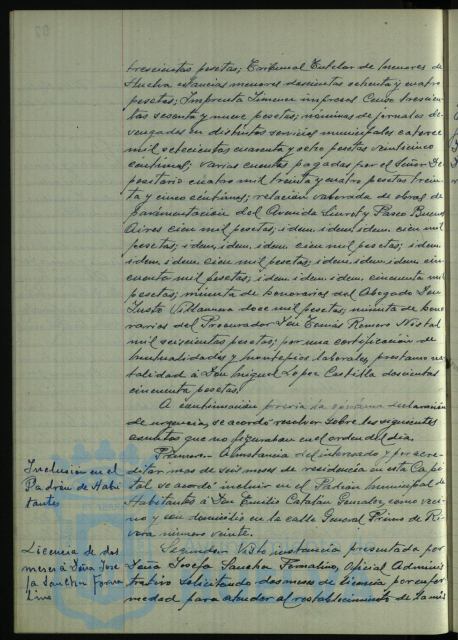 trescientas pesetas; Tribunal Tutelar de menores de
Huelva estancias menores doscientas ochenta y cuatro
pesetas; Imprenta Jimenez impresos Censo trescien-
tas sesenta y nueve pesetas; nóminas de jornales de-
vengados en distintos servicios municipales catorce
mil setecientas cuarenta y ocho pesetas veinticinco
centimos; varias cuentas pagadas por el Señor De-
positario cuatro mil treinta y cuatro pesetas trein-
ta y cinco centimos; relación valorada de obras de
pavimentación del Avenida y Paseo Buenos
Aires cien mil pesetas; idem. idem. idem. cien mil
pesetas; idem. idem. idem. cien mil pesetas; idem.
idem. idem. cien mil pesetas; idem. idem. idem cin-
cuenta mil pesetas; idem. idem. idem. cincuenta mil
pesetas; minuta de honorarios del Abogado Don
Justo Villanueva doce mil pesetas; minuta de hono-
rarios del Procurador Don Tomás Romero Nistal
mil seiscientas pesetas; por una certificación de
mutualidades y montepios laborales, prestamo na-
talidad á Don Miguel Lopez Castilla doscientas
cincuenta pesetas.
A continuación previa la oportuna declaración
de urgencia, se acordó resolver sobre los siguientes
asuntos que no figuraban en el orden del dia.
Primero.- A instancia del interesado y por acre-
ditar mas de seis meses de residencia en esta Capi-
tal se acordó incluir en el Padrón municipal de
Habitantes á Don Emilio Catalán Gonzalez, como veci-
no y con domicilio en la calle General Primo de Ri-
vera número veinte.
Inclusión en el
Padrón de Habi
tantes
Segundo.- Visto instancia presentada por
Doña Josefa Sanchez Fornalino, Oficial Adminis-
trativo solicitando dos meses de licencia por enfer-
medad para atender al restablecimiento de la mis
Licencia de dos
meses á Doña Jose
fa Sanchez Forna
lino